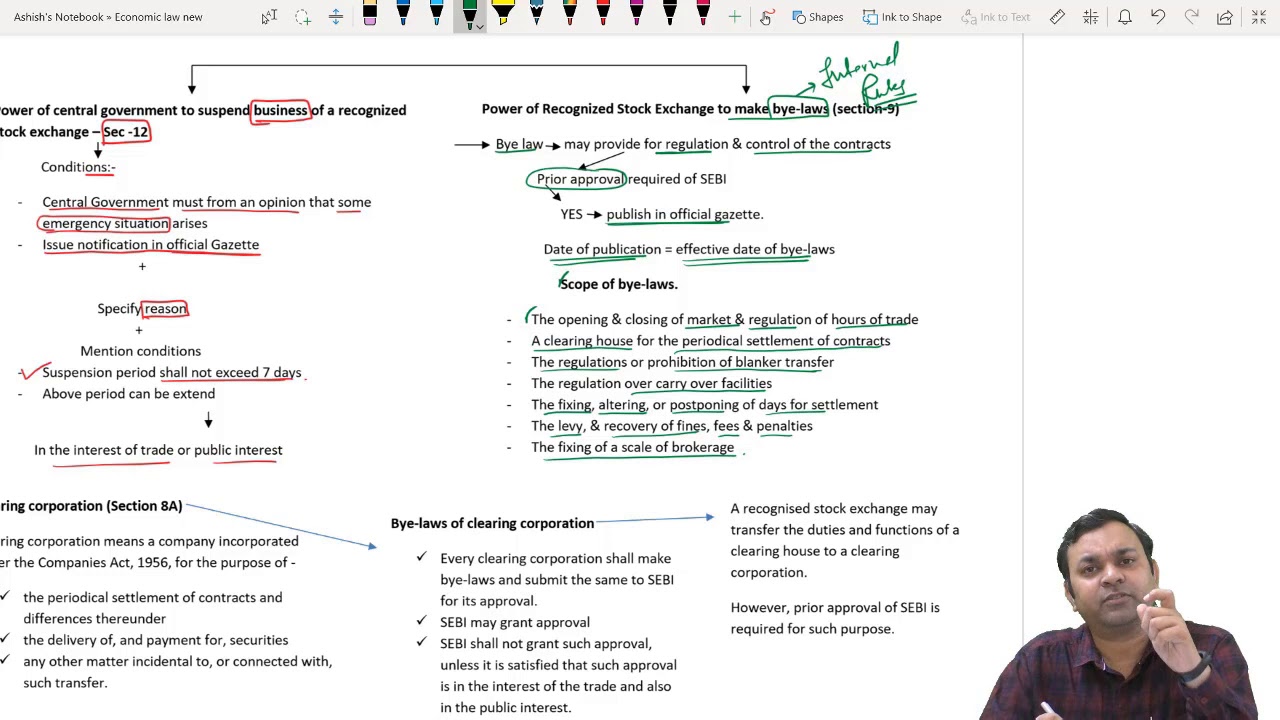 Ashish's Notebook » Economic law new
Shapes
Ink to Shape
Ink to Text
Internal
Rules
Power of central government to suspend business of a recognized
stock exchange – Sec -12
Conditions:-
- Central Government must from an opinion that some
emergency situation arises
- Issue notification in official Gazette
+
Specify reason
+
Mention conditions
- Suspension period shall not exceed 7 days.
- Above period can be extend
In the interest of trade or public interest
Power of Recognized Stock Exchange to make bye-laws (section-9)
Bye law → may provide for regulation & control of the contracts
Prior approval required of SEBI
YES → publish in official gazette.
Date of publication = effective date of bye-laws
Scope of bye-laws.
- The opening & closing of market & regulation of hours of trade
- A clearing house for the periodical settlement of contracts
- The regulations or prohibition of blanker transfer
- The regulation over carry over facilities
- The fixing, altering, or postponing of days for settlement
- The levy, & recovery of fines, fees & penalties
- The fixing of a scale of brokerage
ring corporation (Section 8A)
ring corporation means a company incorporated
er the Companies Act, 1956, for the purpose of -
✓ the periodical settlement of contracts and
differences thereunder
✓ the delivery of, and payment for, securities
✓ any other matter incidental to, or connected with,
such transfer.
Bye-laws of clearing corporation
✓ Every clearing corporation shall make
bye-laws and submit the same to SEBI
for its approval.
✓ SEBI may grant approval
✓ SEBI shall not grant such approval,
unless it is satisfied that such approval
is in the interest of the trade and also
in the public interest.
A recognised stock exchange may
transfer the duties and functions of a
clearing house to a clearing
corporation.
However, prior approval of SEBI is
required for such purpose.